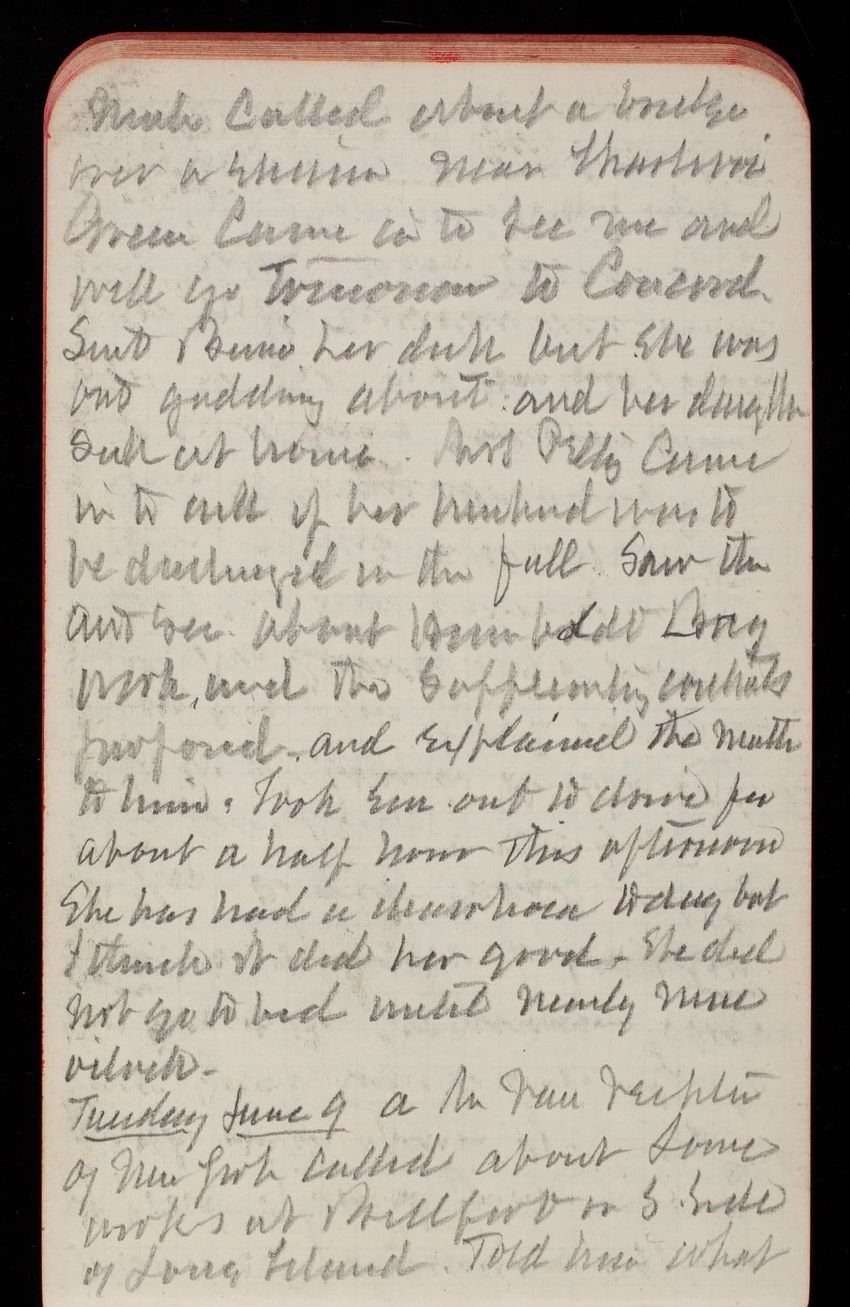 called about a bridge
over a stream near
Green came in to see me and
will go tomorrow to Concord.
Sent her but she was
out gadding about and her daughter
sick at home. Mrs Petty came
in to ask if her husband was to
be discharged in the fall. Saw the
Act Sec about Humboldt Bay
work, and the Supplementary contracts
proposed and explained the matter
to him. Took Em out to drive for
about a half hour this afternoon
She has had a diarrhoea today but
I think it did her good. She did
not go to bed until nearly nine
oclock.
Tuesday June 9 a Mr Van
of New York called about some
works at on S. Side
of Long Island. Told him what